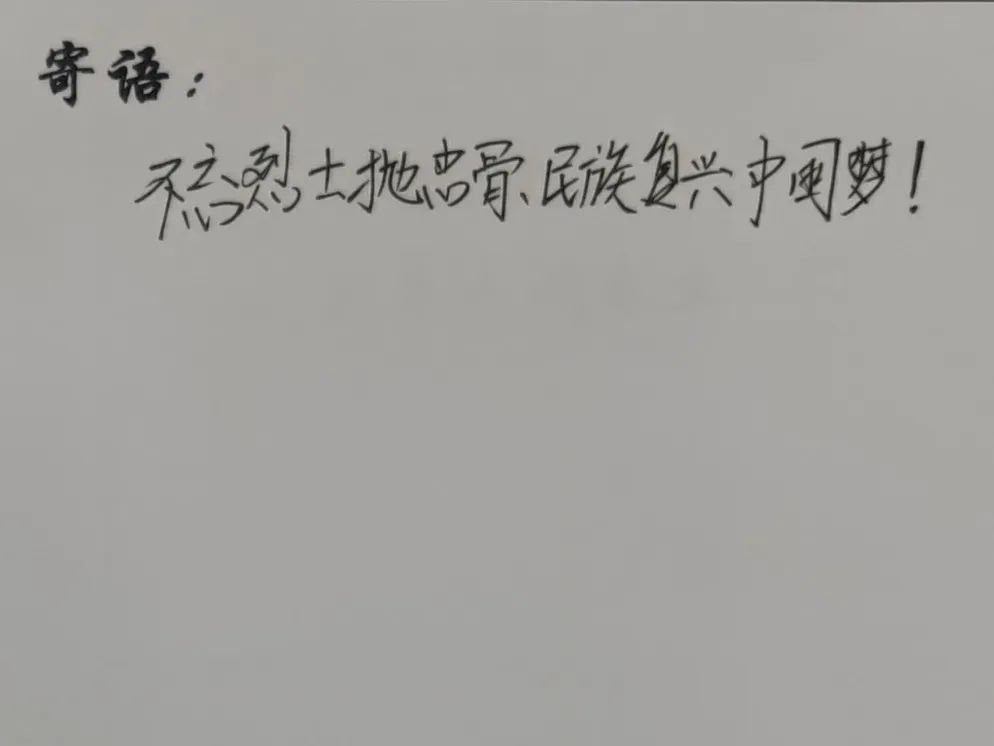 寄语：
不忘烈士抛忠骨、民族复兴中国梦！